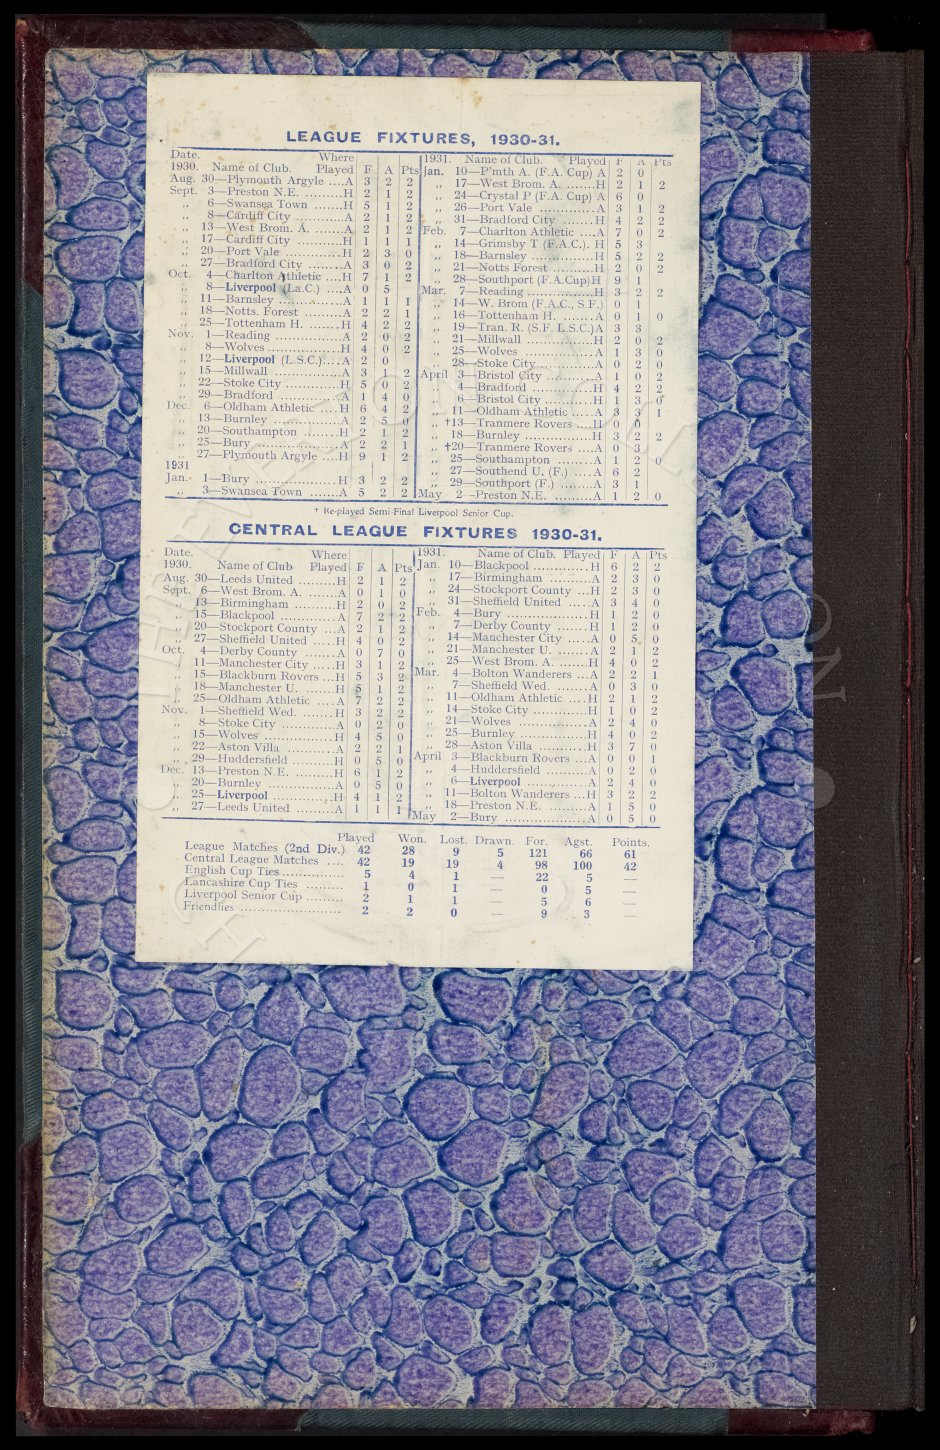 LEAGUE FIXTURES, 1930-31.
Date. Where
1930. Name of Club. Played F A Pts
Aug. 30—Plymouth Argyle ....A 3 2 2
Sept. 3—Preston N.E. ..........H 2 1 2
„ 6—Swansea Town ........H 5 1 2
„ 8—Cardiff City ............A 2 1 2
13—West Brom. A. ........A 2 1 2
„ 17—Cardiff City ...........H 1 1 1
„ 20—Port Vale ...............H 2 3 0
„ 27—Bradford City ........A 3 0 2
Oct. 4—Charlton Athletic ....H 7 1 2
„ 8—Liverpool (La.C.) ....A 0 5
„ 11—Barnsley ................A 1 1 1
„ 18—Notts. Forest ..........A 2 2 1
„ 25—Tottenham H. ........H 4 2 2
Nov. 1—Reading .................A 2 0 2
„ 8—Wolves..................H 4 0 2
„ 12—Liverpool (L.S.C.)....A 2 0
„ 15—Millwall .................A 3 1 2
22—Stoke City .............H 5 0 2
„ 29—Bradford ...............A 1 4 0
Dec. 6—Oldham Athletic ....H 6 4 2
„ 13—Burnley ................A 2 5 0
„ 20—Southampton .........H 2 1 2
„ 25—Bury .....................A 2 2 1
„ 27—Plymouth Argyle ....H 9 1 2
1931
Jan.- 1—Bury .....................H 3 2 2
„ 3—Swansea Town .......A 5 2 2
1931. Name of Club. Played F A Pts
Jan. 10—P'mth A. (F.A. Cup) A 2 0
„ 17—West Brom. A. .......H 2 1 2
„ 24—Crystal P (F.A. Cup) A 6 0
„ 26—Port Vale ...............A 3 1 2
„ 31—Bradford City .........H 4 2 2
Feb. 7—Charlton Athletic ....A 7 0 2
„ 14—Grimsby T (F.A.C.). H 5 3
„ 18—Barnsley ................H 5 2 2
„ 21—Notts Forest ...........H 2 0 2
„ 28—Southport (F.A.Cup)H 9 1
Mar. 7—Reading .................H 3 2 2
„ 14—W. Brom (F.A.C., S.F.) 0 1
„ 16—Tottenham H. .........A 0 1 0
„ 19—Tran. R. (S.F. L.S.C.)A 3 3
„ 21—Millwall .................H 2 0 2
„ 25—Wolves ..................A 1 3 0
28—Stoke City ..............A 0 2 0
April 3—Bristol City ............A 1 0 2
4—Bradford ................H 4 2 2
„ 6—Bristol City ............H 1 3 0
11—Oldham Athletic .....A 3 3 1
„ †13—Tranmere Rovers ....H 0 0
„ 18—Burnley .................H 3 2 2
„ †20—Tranmere Rovers ....A 0 3
„ 25—Southampton .........A 1 2 0
„ 27—Southend U. (F.) .....A 6 2
„ 29—Southport (F.) ........A 3 1
May 2—Preston N.E. ..........A 1 2 0
† Re-played Semi-Final Liverpool Senior Cup.
CENTRAL LEAGUE FIXTURES 1930-31.
Date. Where
1930. Name of Club Played F A Pts
Aug. 30—Leeds United ..........H 2 1 2
Sept. 6—West Brom. A. ........A 0 1 0
„ 13—Birmingham ...........H 2 0 2
„ 15—Blackpool ..............A 7 2 2
„ 20—Stockport County ...A 2 1 2
„ 27—Sheffield United .....H 4 0 2
Oct. 4—Derby County ........A 0 7 0
„ 11—Manchester City .....H 3 1 2
„ 15—Blackburn Rovers ...H 5 3 2
„ 18—Manchester U. ........H 5 1 2
„ 25—Oldham Athletic ....A 7 2 2
Nov. 1—Sheffield Wed. ........H 3 2 2
„ 8—Stoke City ..............A 0 2 0
„ 15—Wolves ..................H 4 5 0
„ 22—Aston Villa .............A 2 2 1
„ 29—Huddersfield ..........H 0 5 0
Dec. 13—Preston N.E. ...........H 6 1 2
„ 20—Burnley .................A 0 5 0
„ 25—Liverpool ...............H 4 1 2
„ 27—Leeds United ..........A 1 1 1
1931. Name of Club. Played F A Pts
Jan. 10—Blackpool ...............H 6 2 2
„ 17—Birmingham ...........A 2 3 0
„ 24—Stockport County ...H 2 3 0
„ 31—Sheffield United .....A 3 4 0
Feb. 4—Bury ......................H 1 2 0
„ 7—Derby County .........H 1 2 0
„ 14—Manchester City .....A 0 5 0
„ 21—Manchester U. ........A 2 1 2
„ 25—West Brom. A. ........H 4 0 2
Mar. 4—Bolton Wanderers ...A 2 2 1
„ 7—Sheffield Wed. ........A 0 3 0
„ 11—Oldham Athletic ....H 2 1 2
14—Stoke City ..............H 1 0 2
„ 21—Wolves ..................A 2 4 0
„ 25—Burnley .................H 4 0 2
„ 28—Aston Villa ............H 3 7 0
April 3—Blackburn Rovers ...A 0 0 1
„ 4—Huddersfield ..........A 0 2 0
„ 6—Liverpool ...............A 2 4 0
„ 11—Bolton Wanderers ...H 3 2 2
„ 18—Preston N.E. ...........A 1 5 0
May 2—Bury ......................A 0 5 0
Played Won. Lost. Drawn. For. Agst. Points.
League Matches (2nd Div.) 42 28 9 5 121 66 61
Central League Matches .... 42 19 19 4 98 100 42
English Cup Ties................ 5 4 1 — 22 5 —
Lancashire Cup Ties ......... 1 0 1 — 0 5 —
Liverpool Senior Cup ......... 2 1 1 — 5 6 —
Friendlies ......................... 2 2 0 — 9 3 —